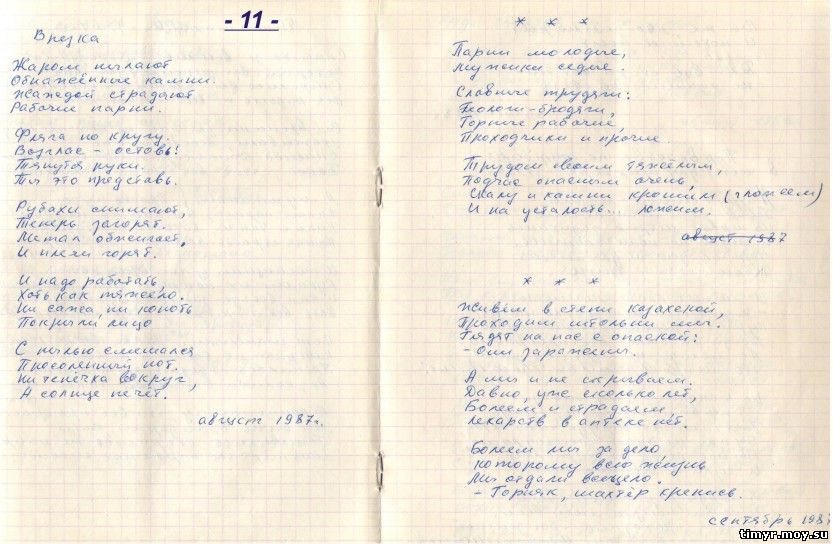 - 11 -
Врезка
Жаром пылают
Обнажённые камни.
Жаждой страдают
Рабочие парни.
Фляга по кругу.
Возглас - оставь!
Тянутся руки.
Ты это представь.
Рубахи снимают,
Теперь загорят.
Метал обжигает,
И плечи горят.
И надо работать,
Хоть как тяжело.
Ни сажа, ни копоть
Покрыли лицо
С пылью смешался
Просоленный пот.
Ни тенёчка вокруг,
А солнце печёт.
август 1987г.
* * *
Парни молодые,
Мужики седые.
Славные трудяги:
Геологи-бродяги,
Горные рабочие,
Проходчики и прочие.
Трудом своим тяжёлым,
Подчас опасным очень,
Скалу и камни крошим (гложем)
И на усталость... ложим.
август 1987
* * *
Живём в степи казахской,
Проходим штольни мы.
Глядят на нас с опаской:
- Они заражены.
А мы и не скрываем.
Давно, уже сколько лет,
Болеем и страдаем,
Лекарств в аптеке нет.
Болеем мы за дело,
которому всю жизнь
Мы отдали всецело.
- Горняк, шахтёр крепись.
сентябрь 1987
timyr.moy.su